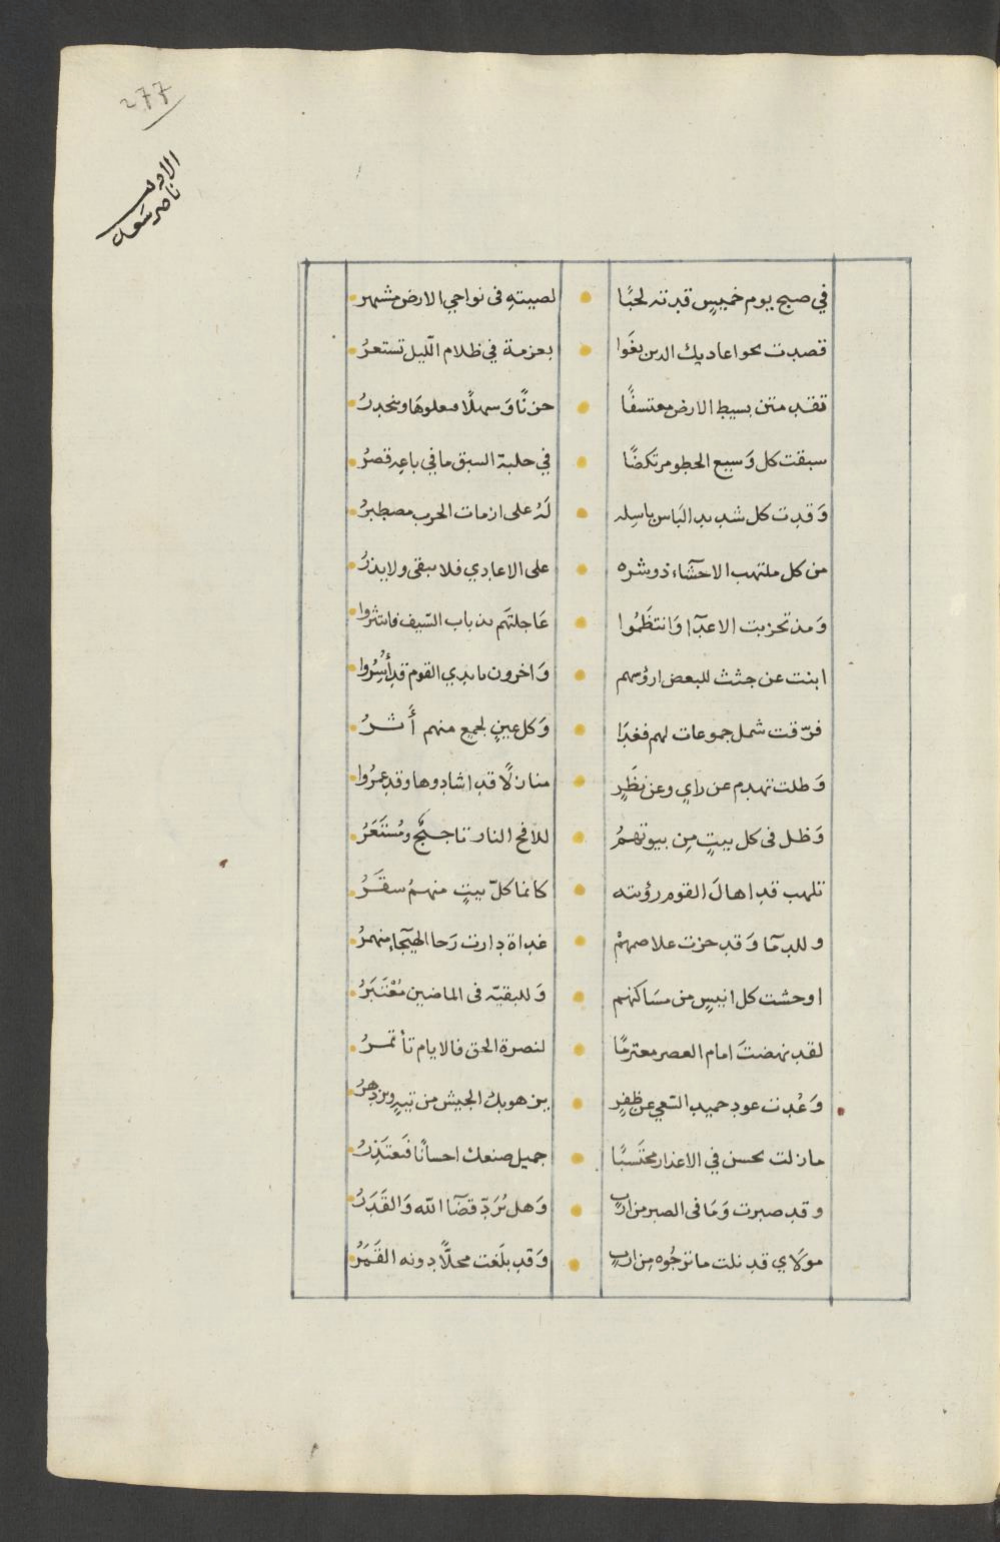 ٢٧٧
ناصر سعد
في صبح يوم خميسٍ قدته لجبًا لصيتهِ في نواحي الارض مشهر
قصدت نحو اعاديك الدىن بغَوا بعزمة في ظلام الّليل تستعرُ
تقد متن بسيط الارض معتسفًا حزنًا وَسهلًا معلوهَا وينحدرُ
سبقت كل وَسيع الخطو مرتكضًا في حلبة السبق ما في باعهِ قصرُ
وَقدت كل شديد البَاس باسله لَهُ على ازمات الحرب مصطبرُ
من كل ملتهب الاحشآء ذو شره على الاعادي فلا يبقى ولا يذرُ
وَمذ تحزبت الاعدآا وَانتظَمُوا عَاجلتَهم بذباب السّيف فانتثروا
ابنت عن جثث للبعض ارؤسهم وَاخرون بايدي القوم قد أُسِرُوا
فرّقت شمل جموعات لهم فغدَا وَكل عينٍ لجمع منهم أَثرُ
وَظلت تهدم عن رايٍ وعن نظَرٍ منازلًا قد اشادوها وقد عمرُوا
وَظل في كل بيتٍ مِن بيوتهمُ للافح النار تاجيٌج ومُستَعَرُ
تلهب قد اهالَ القوم رؤيته كانما كلّ بيتٍ منهمُ سقَرُ
وللدمآ وَقد حزت علاصمهمْ غداة دارت رَحا الهيجآء منهمرُ
اوحشت كل انيسٍ من مسَاكنهم وَللبقيّه في الماضين مُعْتَبَرُ
لقد نهضتَ امام العصر معتزمًا لنصرة الحق فالايام تأتمرُ
وَعُدت عود حميد السّعي عن ظفرٍ يزهو بك الجيش من تيهٍ ويزدهرُ
مازلت تحسن في الاعذار محتَسبًا جميل صنعك احسانًا فتعتَذِرُ
وقد صبرت وَمَا في الصبر من اربٍ وَهل تُرَدّ قضَآ اللّه وَالقَدَرُ
مولَاي قد نلت ما ترجُوه مِن اربٍ وَقد بلَغت محلًّا دونه القَمَرُ